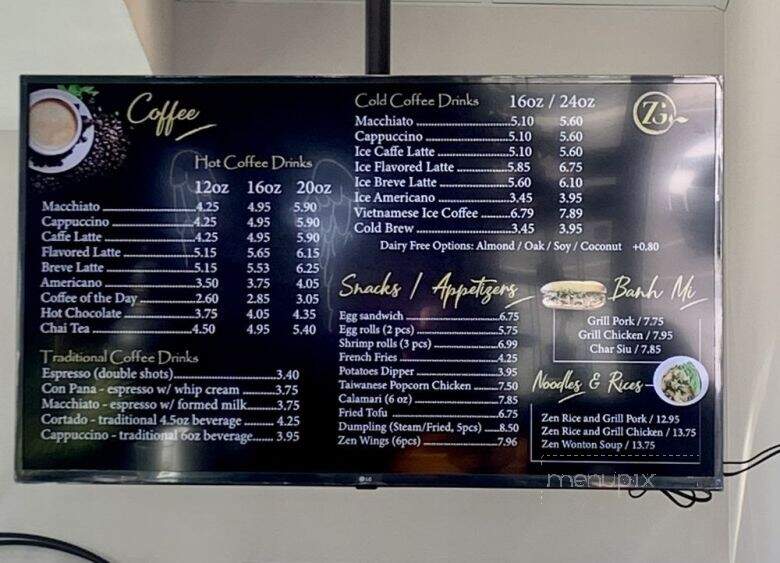 Coffee
Hot Coffee Drinks
12oz 16oz 20oz
Macchiato 4.25 4.95 5.90
Cappuccino 4.25 4.95 5.90
Caffe Latte 4.25 4.95 5.90
Flavored Latte 5.15 5.65 6.15
Breve Latte 5.15 5.53 6.25
Americano 3.50 3.75 4.05
Coffee of the Day 2.60 2.85 3.05
Hot Chocolate 3.75 4.05 4.35
Chai Tea 4.50 4.95 5.40
Traditional Coffee Drinks
Espresso (double shots) 3.40
Con Pana - espresso w/ whip cream 3.75
Macchiato - espresso w/ formed milk 3.75
Cortado - traditional 4.5oz beverage 4.25
Cappuccino - traditional 6oz beverage 3.95
Cold Coffee Drinks 16oz / 24oz
Macchiato 5.10 5.60
Cappuccino 5.10 5.60
Ice Caffe Latte 5.10 5.60
Ice Flavored Latte 5.85 6.75
Ice Breve Latte 5.60 6.10
Ice Americano 3.45 3.95
Vietnamese Ice Coffee 6.79 7.89
Cold Brew 3.45 3.95
Dairy Free Options: Almond / Oak / Soy / Coconut +0.80
ZG
Snacks / Appetizers
Egg sandwich 6.75
Egg rolls (2 pcs) 5.75
Shrimp rolls (3 pcs) 6.99
French Fries 4.25
Potatoes Dipper 3.95
Taiwanese Popcorn Chicken 7.50
Calamari (6 oz) 7.85
Fried Tofu 6.75
Dumpling (Steam/Fried, 5pcs) 8.50
Zen Wings (6pcs) 7.96
Banh Mi
Grill Pork / 7.75
Grill Chicken / 7.95
Char Siu / 7.85
Noodles & Rices
Zen Rice and Grill Pork / 12.95
Zen Rice and Grill Chicken / 13.75
Zen Wonton Soup / 13.75
menupix
LG